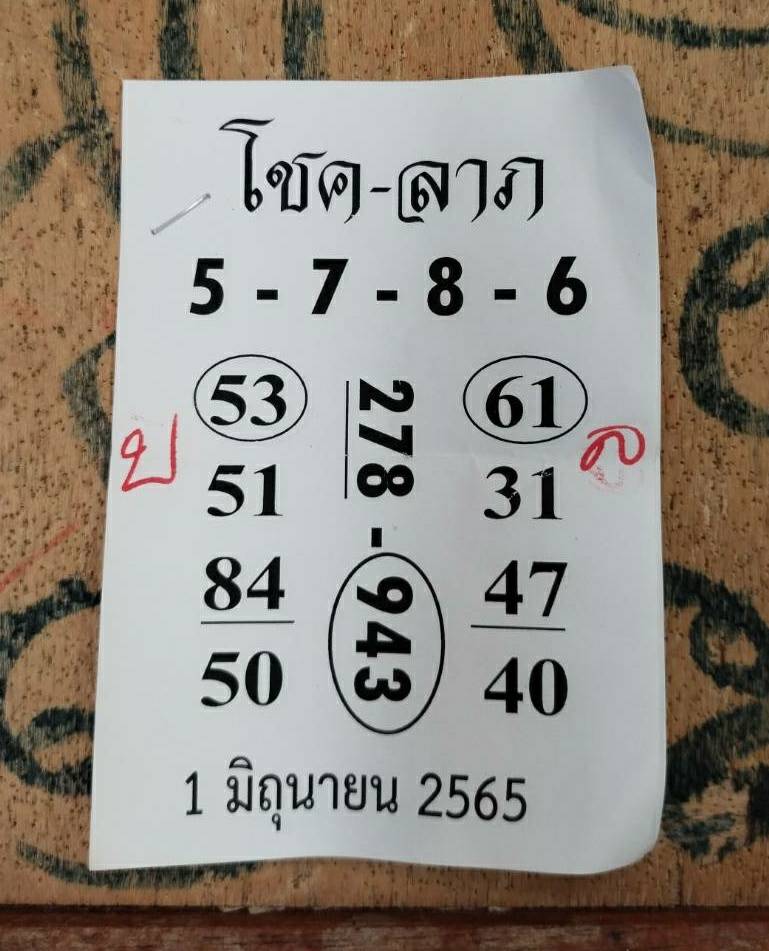 โชค-ลาภ
5 - 7 - 8 - 6
53 61
278 - 943
บ ล
51 31
84 47
50 40
1 มิถุนายน 2565